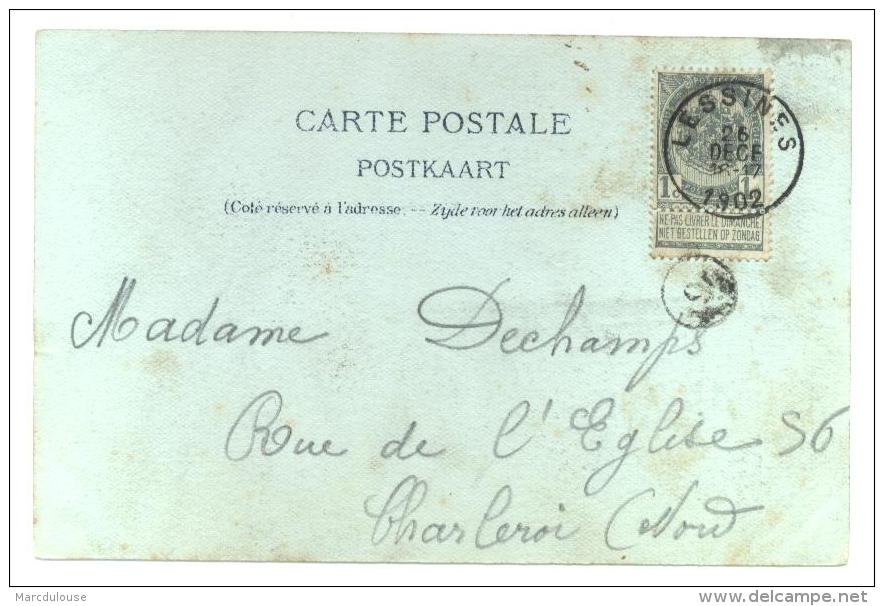 CARTE POSTALE
POSTKAART
(Coté réservé à l'adresse. -- Zijde voor het adres alleen)
LESSINES
26
DECE
1902
1 1
NE PAS LIVRER LE DIMANCHE
NIET BESTELLEN OP ZONDAG
Madame Dechamps
Rue de l'Eglise 56
Charleroi (Nord)
Marcdulouse
www.delcampe.net